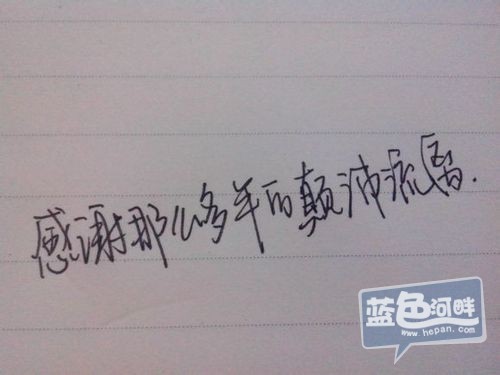 感谢那么多年的颠沛流离.
蓝色河畔
www.hepan.com